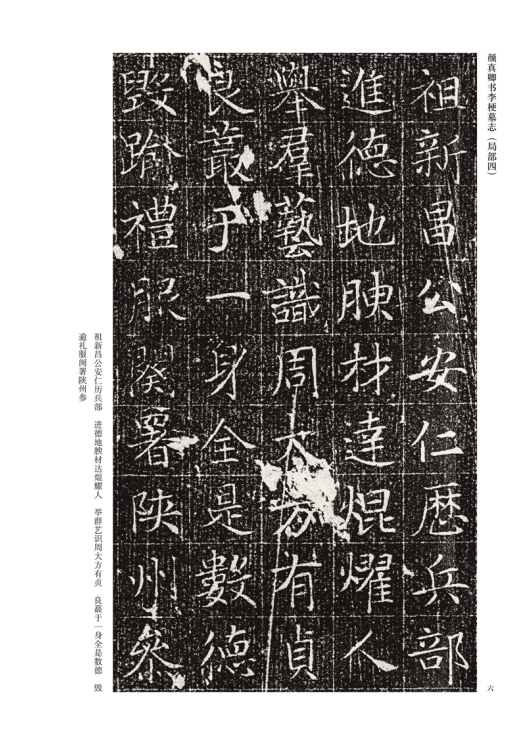 颜真卿书李梗墓志（局部四）
祖新昌公安仁歷兵部
進德地腴材達焜耀人
舉羣藝識周大方有貞
良蕞于一身全是數德
毀踰禮服闋署陝州參
祖新昌公安仁历兵部　进德地腴材达焜耀人　举群艺识周大方有贞　良蕞于一身全是数德　毁
逾礼服阕署陕州参
六